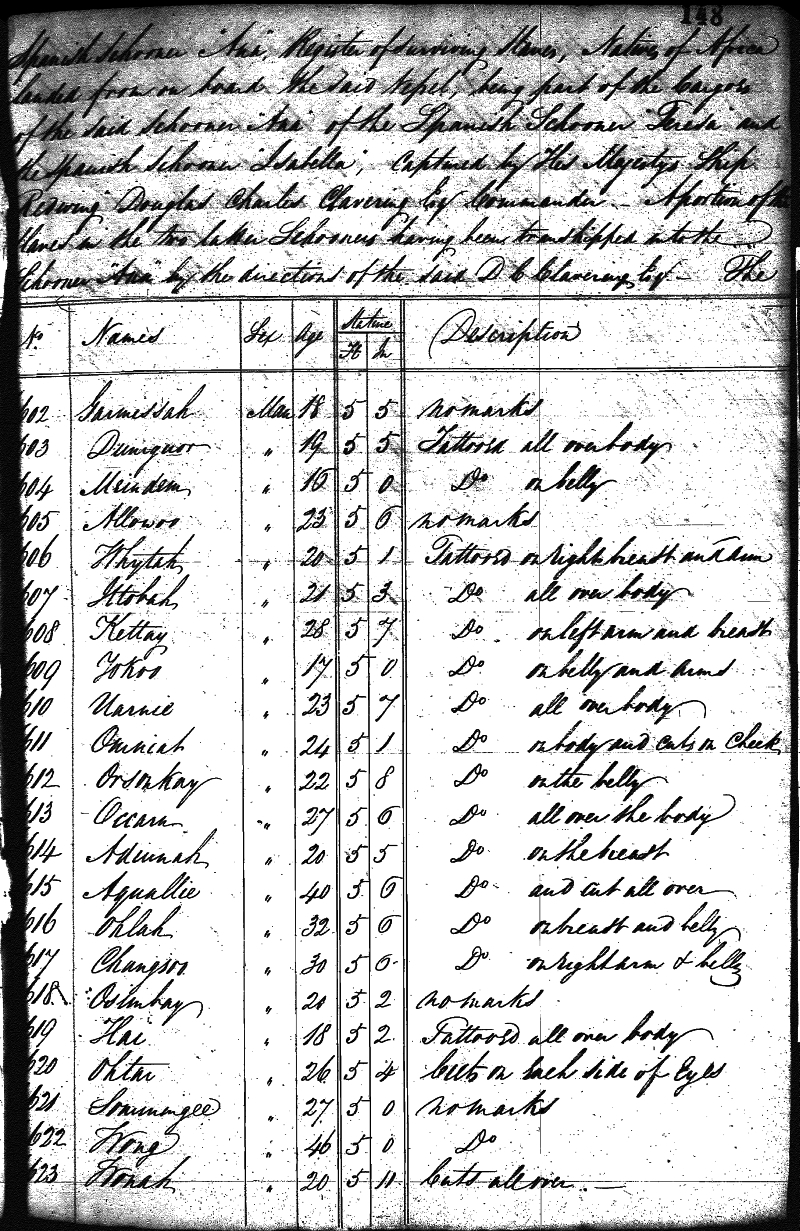 148
Spanish Schooner "Ana", Register of surviving Slaves, Natives of Africa
landed from on board the said Vessel, being part of the Cargoes
of the said Schooner "Ana" of the Spanish Schooner "Teresa" and
the Spanish Schooner "Isabella", Captured by His Majestys Ship
Redwing Douglas Charles Clavering Esq Commander - A portion of the
Slaves in the two latter Schooners having been transhipped into the
Schooner "Ana" by the directions of the said D C Clavering Esq - The
No Names Sex Age Stature Ft In Description
602 Garmessah Man 18 5 5 no marks
603 Dumquor " 19 5 5 Tattooed all over body
604 Meindem " 16 5 0 Do on belly
605 Allowoo " 23 5 6 no marks
606 Whytah " 20 5 1 Tattooed on right breast and arm
607 Ittobah " 21 5 3 Do all over body
608 Kettay " 28 5 7 Do on left arm and breast
609 Jokoo " 17 5 0 Do on belly and arms
610 Uarnie " 23 5 7 Do all over body
611 Omincat " 24 5 1 Do on body and cuts on Cheek
612 Orsonkay " 22 5 8 Do on the belly
613 Occarn " 27 5 6 Do all over the body
614 Adeunah " 20 5 5 Do on the breast
615 Aquallie " 40 5 6 Do and cut all over
616 Ohlah " 32 5 6 Do on breast and belly
617 Changsoo " 30 5 6 Do on right arm & belly
618 Osimbay " 20 5 2 no marks
619 Hai " 18 5 2 Tattooed all over body
620 Ohtar " 26 5 4 Cuts on Each side of Eyes
621 Soammangee " 27 5 0 no marks
622 Wong " 46 5 0 Do
623 Wonah " 20 5 11 Cuts all over. —